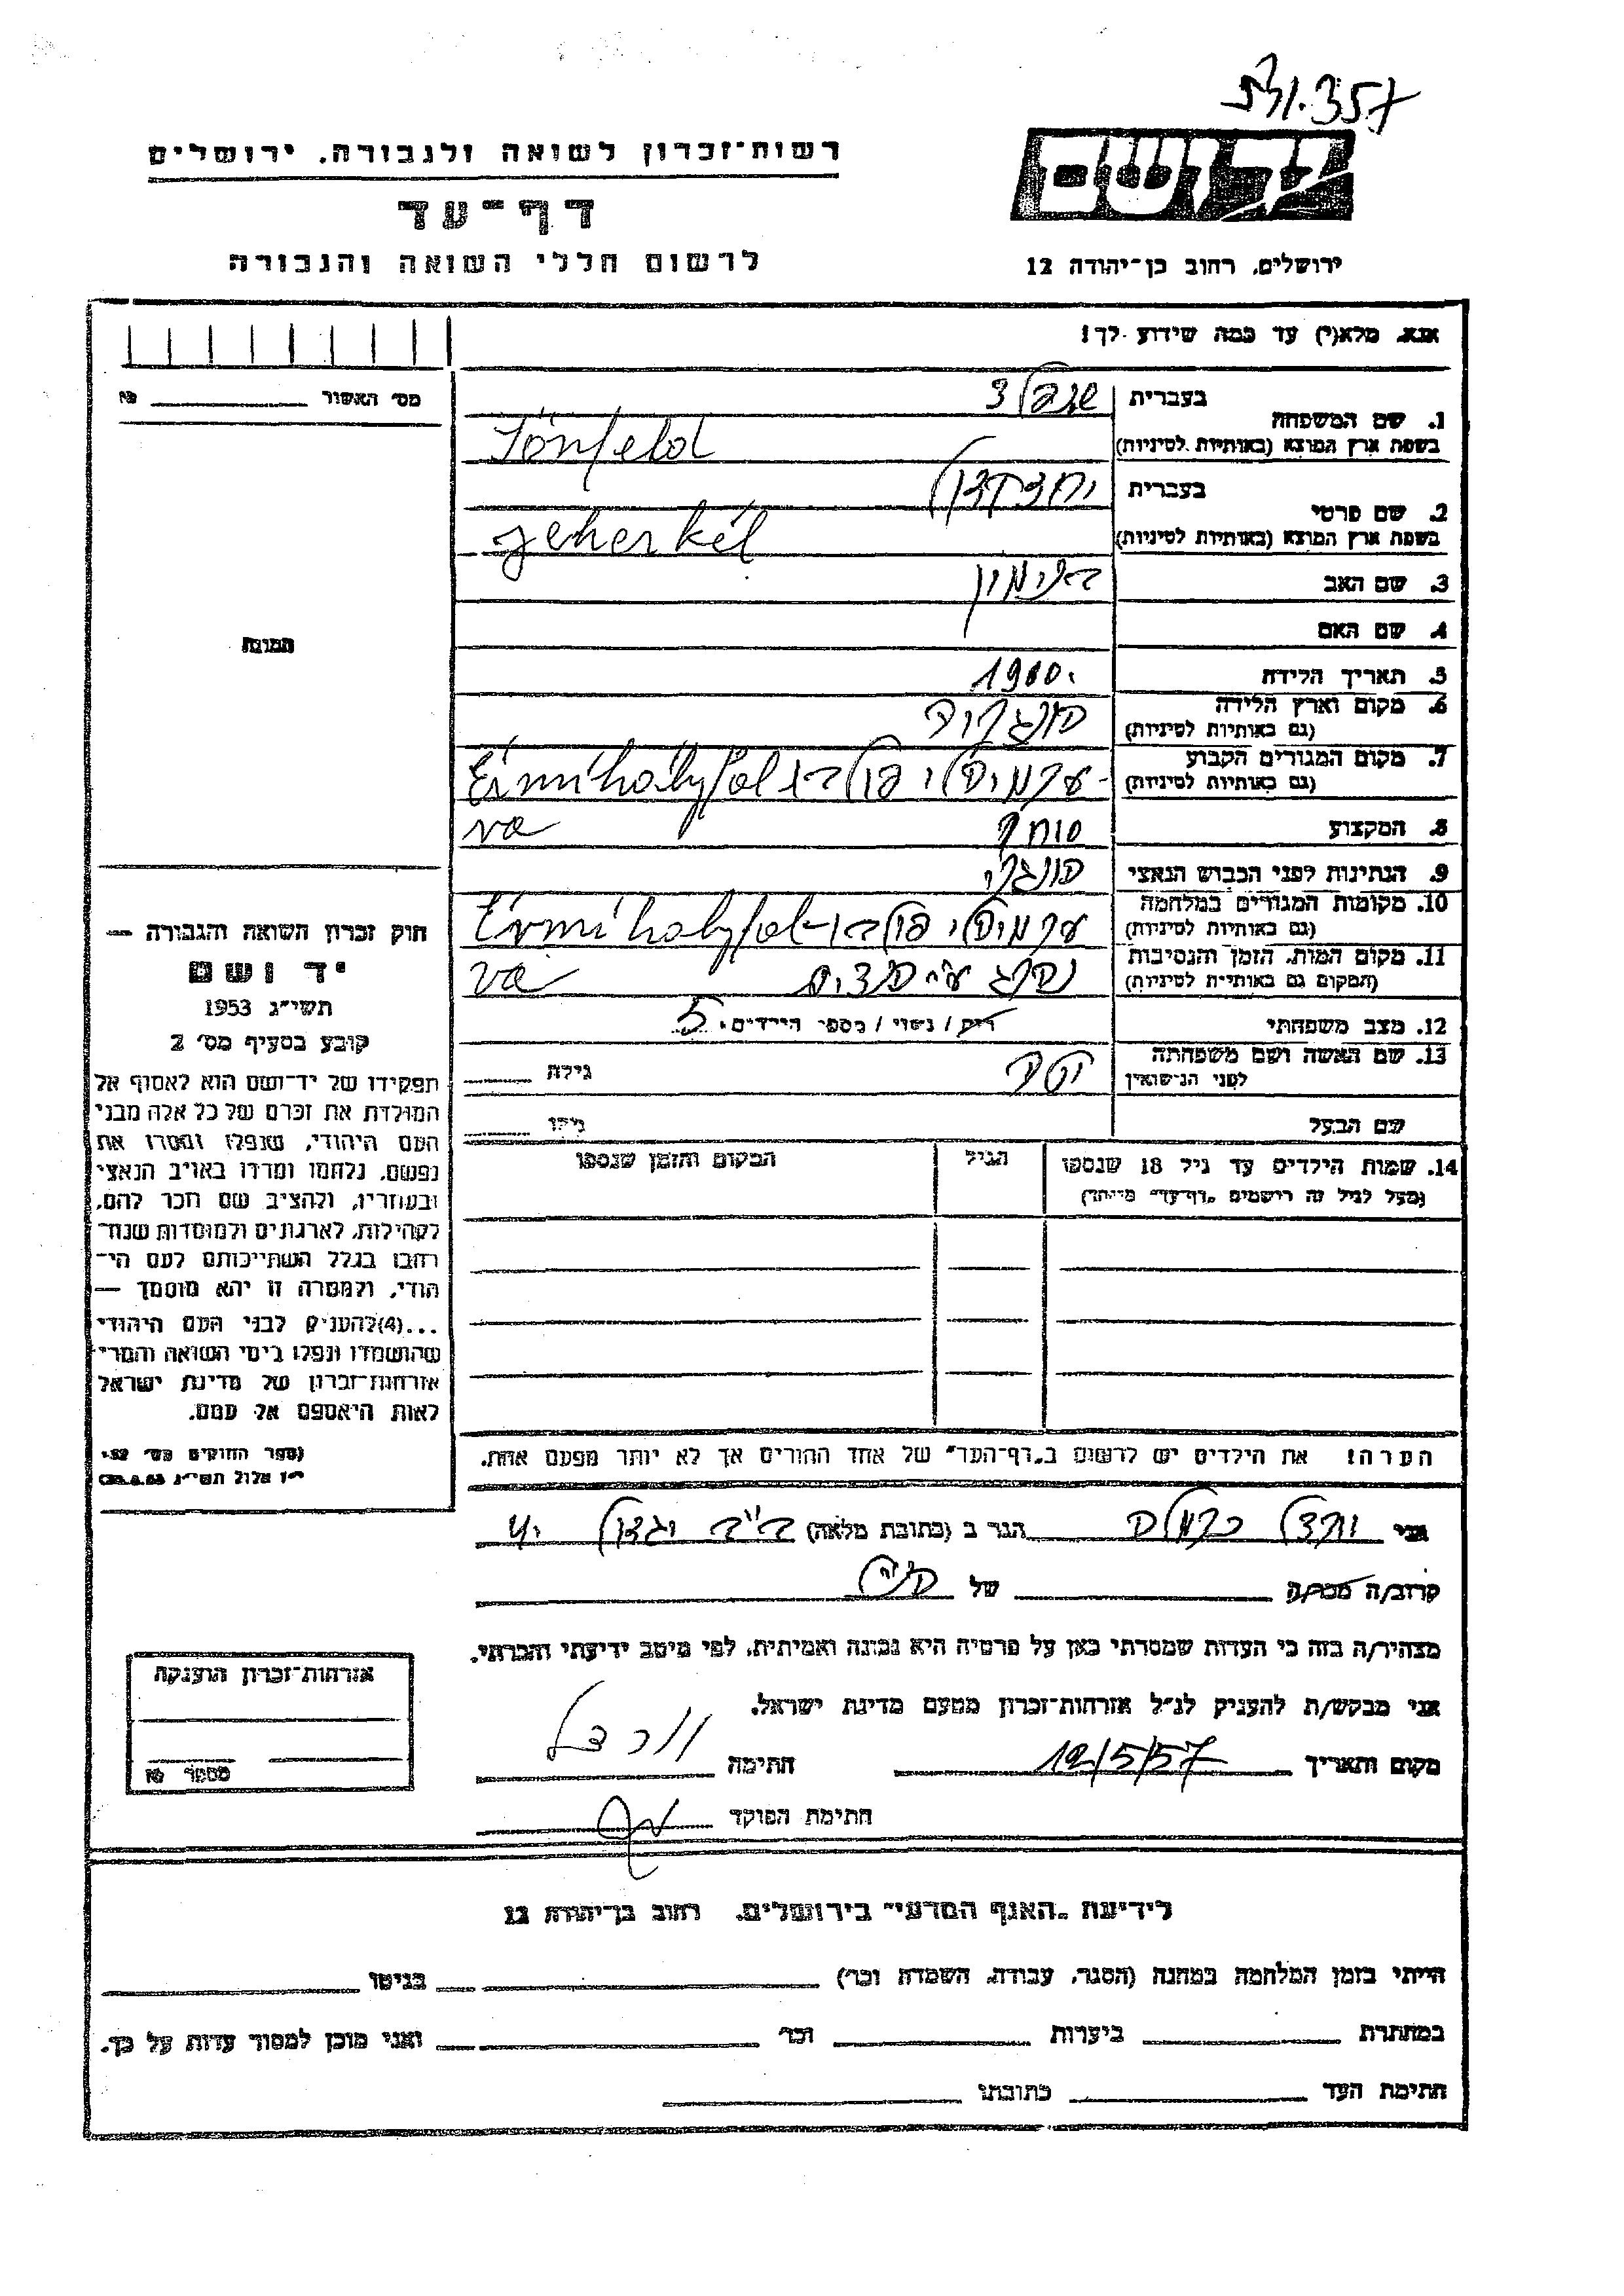 רשות־זכרון לשואה ולגבורה. ירושלים
דף־עד
לרשום חללי השואה והגבורה
ירושלים. רחוב בן־יהודה 12
אנא. מלא(י) עד כמה שידוע לך!
מס׳ האשור № 
בעברית
1. שם המשפחה
בשפת ארץ המוצא (באותיות לטיניות) Sönfeld
בעברית יחזקאל
2. שם פרטי
בשפת ארץ המוצא (באותיות לטיניות) jeherkél
3. שם האב
4. שם האם
5. תאריך הלידה 1900.
6. מקום וארץ הלידה הונגריה
(גם באותיות לטיניות)
7. מקום המגורים הקבוע Érmihályfal
(גם באותיות לטיניות)
8. המקצוע סוחר va
9. הנתינות לפני הכבוש הנאצי הונגרי
10. מקומות המגורים במלחמה Érmihályfal
(גם באותיות לטיניות)
11. מקום המות. הזמן והנסיבות va
(המקום גם באותיות לטיניות)
12. מצב משפחתי רוק / נשוי / מספר הילדים. 5
13. שם האשה ושם משפחתה גילה
לפני הנישואין
שם הבעל גילו
14. שמות הילדים עד גיל 18 שנספו הגיל המקום והזמן שנספו
(מעל לגיל זה רושמים „דף־עד״ מיוחד)
הערה! את הילדים יש לרשום ב„דף־העד״ של אחד ההורים אך לא יותר מפעם אחת.
התמונה
חוק זכרון השואה והגבורה —
יד ושם
תשי״ג 1953
קובע בסעיף מס׳ 2
תפקידו של יד־ושם הוא לאסוף אל
המולדת את זכרם של כל אלה מבני
העם היהודי, שנפלו ומסרו את
נפשם, נלחמו ומרדו באויב הנאצי
ובעוזריו, ולהציב שם וזכר להם,
לקהילות, לארגונים ולמוסדות שנח־
רבו בגלל השתייכותם לעם הי־
הודי, ולמטרה זו יהא מוסמך —
...(4)להעניק לבני העם היהודי
שהושמדו ונפלו בימי השואה והמרי־
אזרחות־זכרון של מדינת ישראל
לאות היאספם אל עמם.
(ספר החוקים מס׳ 132
י״ז אלול תשי״ג
אני הגר ב (כתובת מלאה)
קרוב/ה מכר/ה של
מצהיר/ה בזה כי העדות שמסרתי כאן על פרטיה היא נכונה ואמיתית, לפי מיטב ידיעתי והכרתי.
אני מבקש/ת להעניק לנ״ל אזרחות־זכרון מטעם מדינת ישראל.
מקום ותאריך 12/5/57 חתימה
חתימת הפוקד
אזרחות־זכרון הוענקה
מספר №
לידיעת „האגף המדעי״ בירושלים. רחוב בן־יהודה 12
הייתי בזמן המלחמה במחנה (הסגר, עבודה, השמדה וכו׳) בגיטו
במחתרת ביערות וכו׳ ואני מוכן למסור עדות על כך.
חתימת העד כתובתו